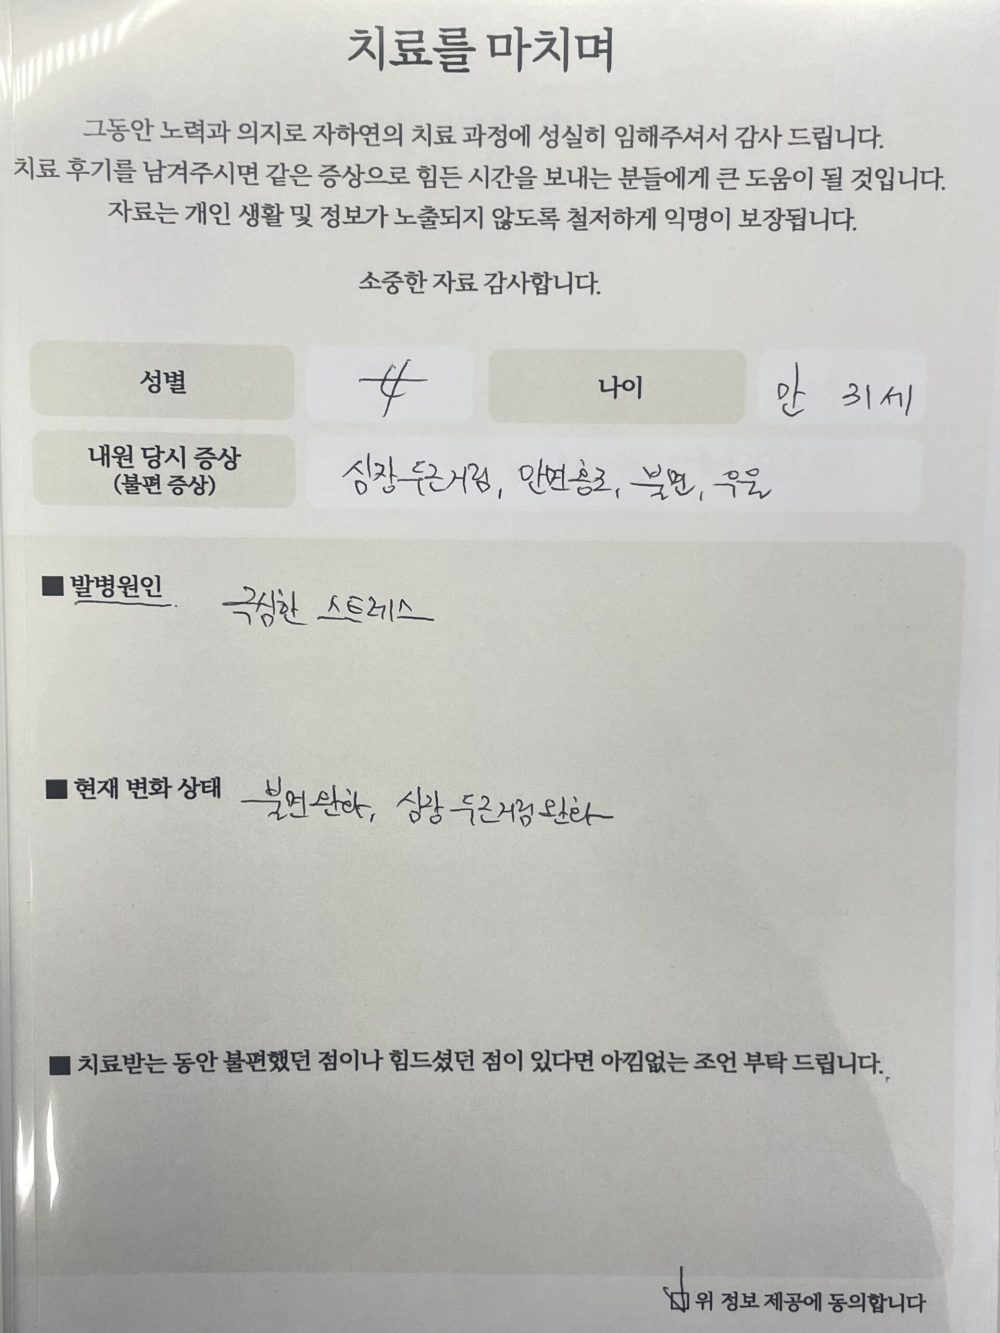 치료를 마치며
그동안 노력과 의지로 자하연의 치료 과정에 성실히 임해주셔서 감사 드립니다.
치료 후기를 남겨주시면 같은 증상으로 힘든 시간을 보내는 분들에게 큰 도움이 될 것입니다.
자료는 개인 생활 및 정보가 노출되지 않도록 철저하게 익명이 보장됩니다.
소중한 자료 감사합니다.
성별 女 나이 만 31세
내원 당시 증상 심장 두근거림, 안면홍조, 불면, 우울
(불편 증상)
■ 발병원인 극심한 스트레스
■ 현재 변화 상태 불면 완화, 심장 두근거림 완화
■ 치료받는 동안 불편했던 점이나 힘드셨던 점이 있다면 아낌없는 조언 부탁 드립니다.
위 정보 제공에 동의합니다